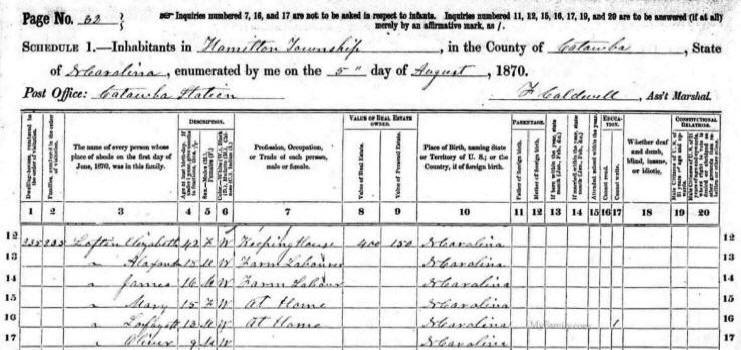 Page No. 32
Inquiries numbered 7, 16, and 17 are not to be asked in respect to infants. Inquiries numbered 11, 12, 15, 16, 17, 19, and 20 are to be answered (if at all) merely by an affirmative mark, as /.
SCHEDULE 1.—Inhabitants in Hamilton Township, in the County of Catawba, State
of N Carolina, enumerated by me on the 5" day of August, 1870.
Post Office: Catawba Station F Caldwell, Ass't Marshal.
DESCRIPTION. VALUE OF REAL ESTATE OWNED. PARENTAGE. EDUCATION. CONSTITUTIONAL RELATIONS.
The name of every person whose place of abode on the first day of June, 1870, was in this family.
Profession, Occupation, or Trade of each person, male or female.
Value of Real Estate.
Value of Personal Estate.
Place of Birth, naming State or Territory of U. S.; or the Country, if of foreign birth.
Father of foreign birth.
Mother of foreign birth.
Attended school within the year.
Cannot read.
Cannot write.
Whether deaf and dumb, blind, insane, or idiotic.
1 2 3 4 5 6 7 8 9 10 11 12 13 14 15 16 17 18 19 20
12 235 235 Loftin Elizabeth 42 F W Keeping House 400 150 N Carolina 12
13 " 18 M W Farm Labourer N Carolina 13
14 " James 16 M W Farm Labour N Carolina 14
15 " Mary 15 F W At Home N Carolina 15
16 " Lafayett 13 M W At Home N Carolina 1 16
17 " Oliver 9 M W N Carolina 17